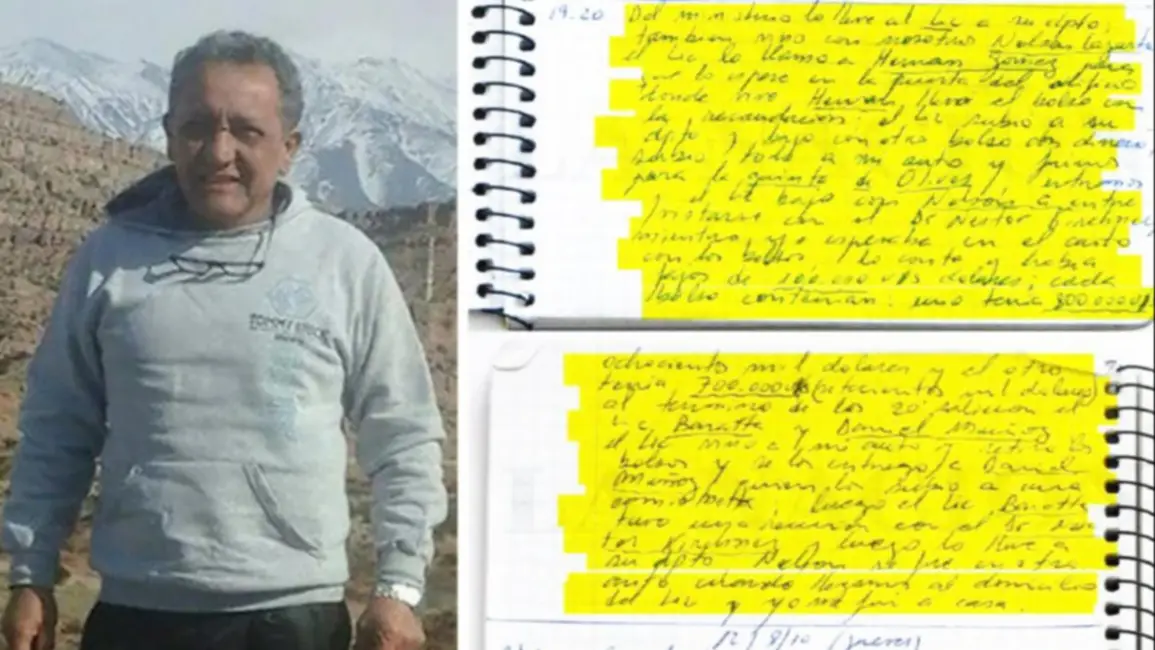 19-20 Del ministerio lo lleve al Lic a su dpto,
tambien vino con nosotro Nelson Lazarte
el Lic lo llamo a Hernan Gomez para
que lo espere en la puerta del edificio
donde vive Hernan, lleva el bolso con
la recaudacion: el Lic subio a su
dpto y bajo con otro bolso con dinero,
subio todo a mi auto y fuimos
para la quinta de Olivos, entramos
el Lic bajo con Nelson a entre
vistarse con el Dr Nestor Kirchner,
mientras yo esperaba en el auto
con los bolsos, lo conte y habia
fajos de 100.000 U$S dolares, cada
bolso contenian: uno tenia 800.000 U$S
ochocientos mil dolares y el otro
tenia 700.000 U$S (setecientos mil dolares)
al termino de los 20' salieron el
Lic Baratta y Daniel Muñoz
el Lic vino a mi auto y retiro los
bolsos y se los entrego a Daniel
Muñoz quien los subio a una
camioneta; luego el Lic Baratta
tuvo una reunion con el Dr Nes
tor Kirchner y luego lo lleve a
su dpto Nelson se fue en otro
auto cuando llegamos al domicilio
del Lic y yo me fui a casa.
12/8/10 (jueves)